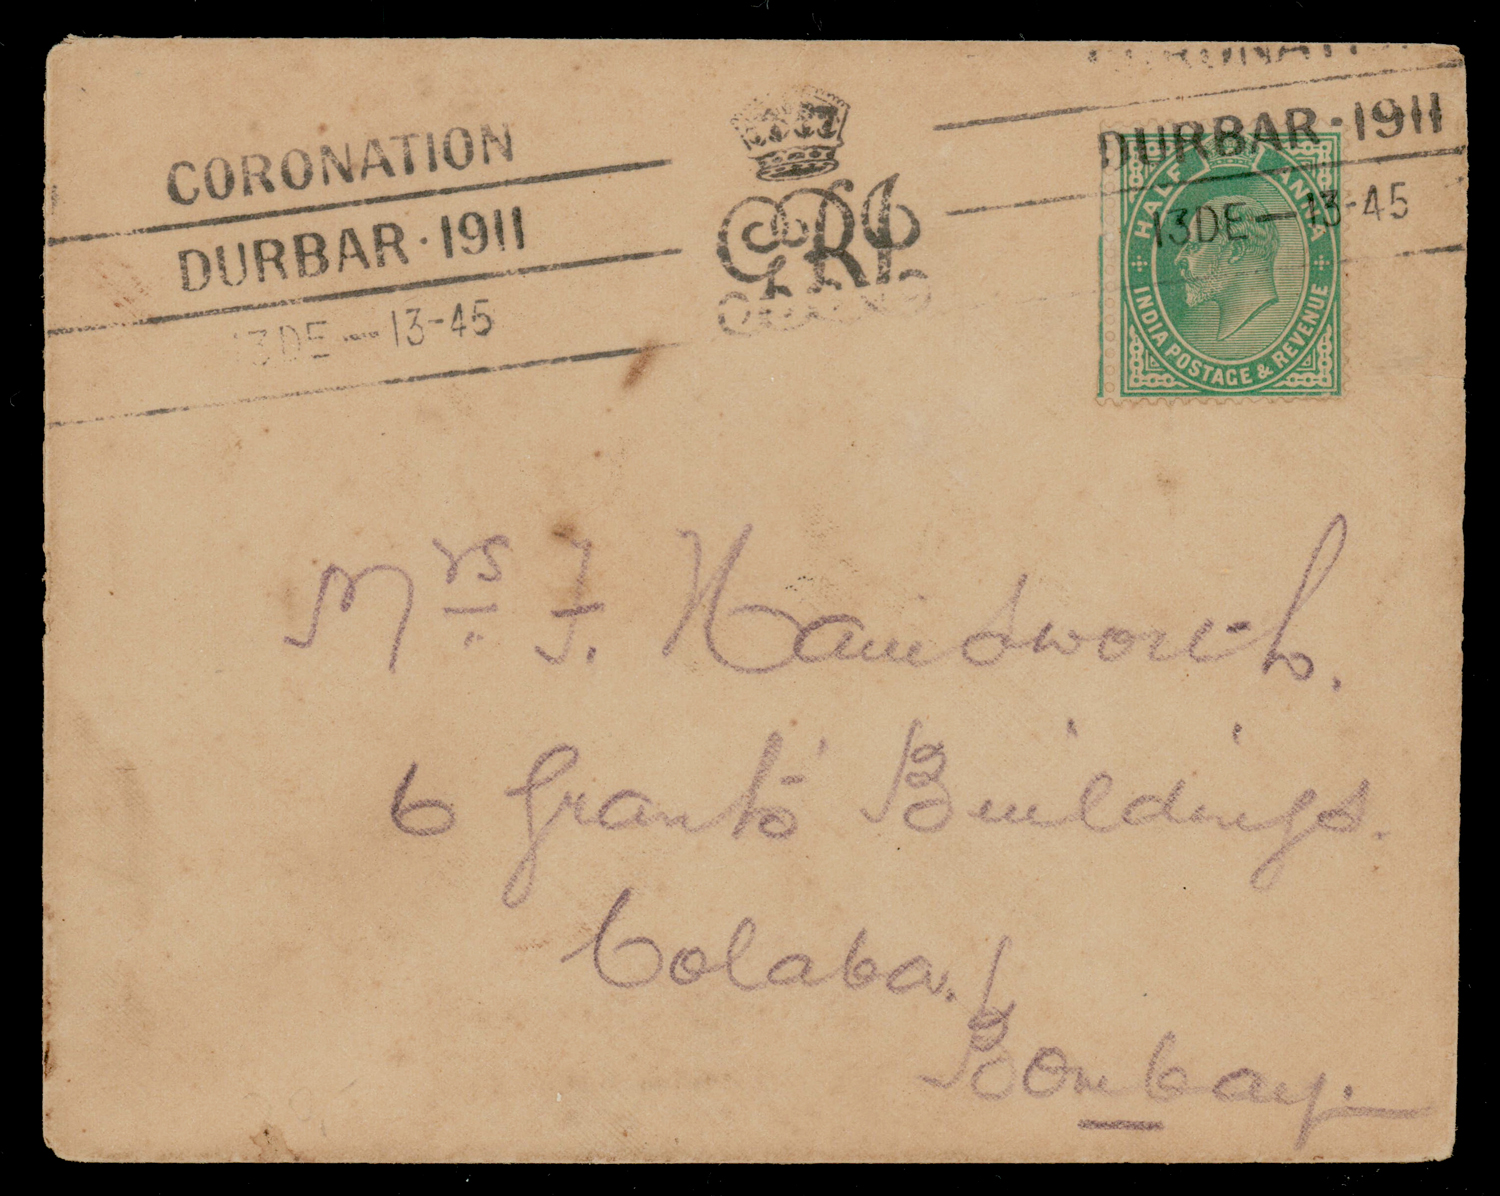 CORONATION
DURBAR · 1911
13DE — 13-45
GRI
CORONATI
DURBAR · 1911
13DE — 13-45
HALF ANNA
INDIA POSTAGE & REVENUE
Mrs. J. Hainsworth.
6 Grants' Buildings.
Colaba.
Bombay.